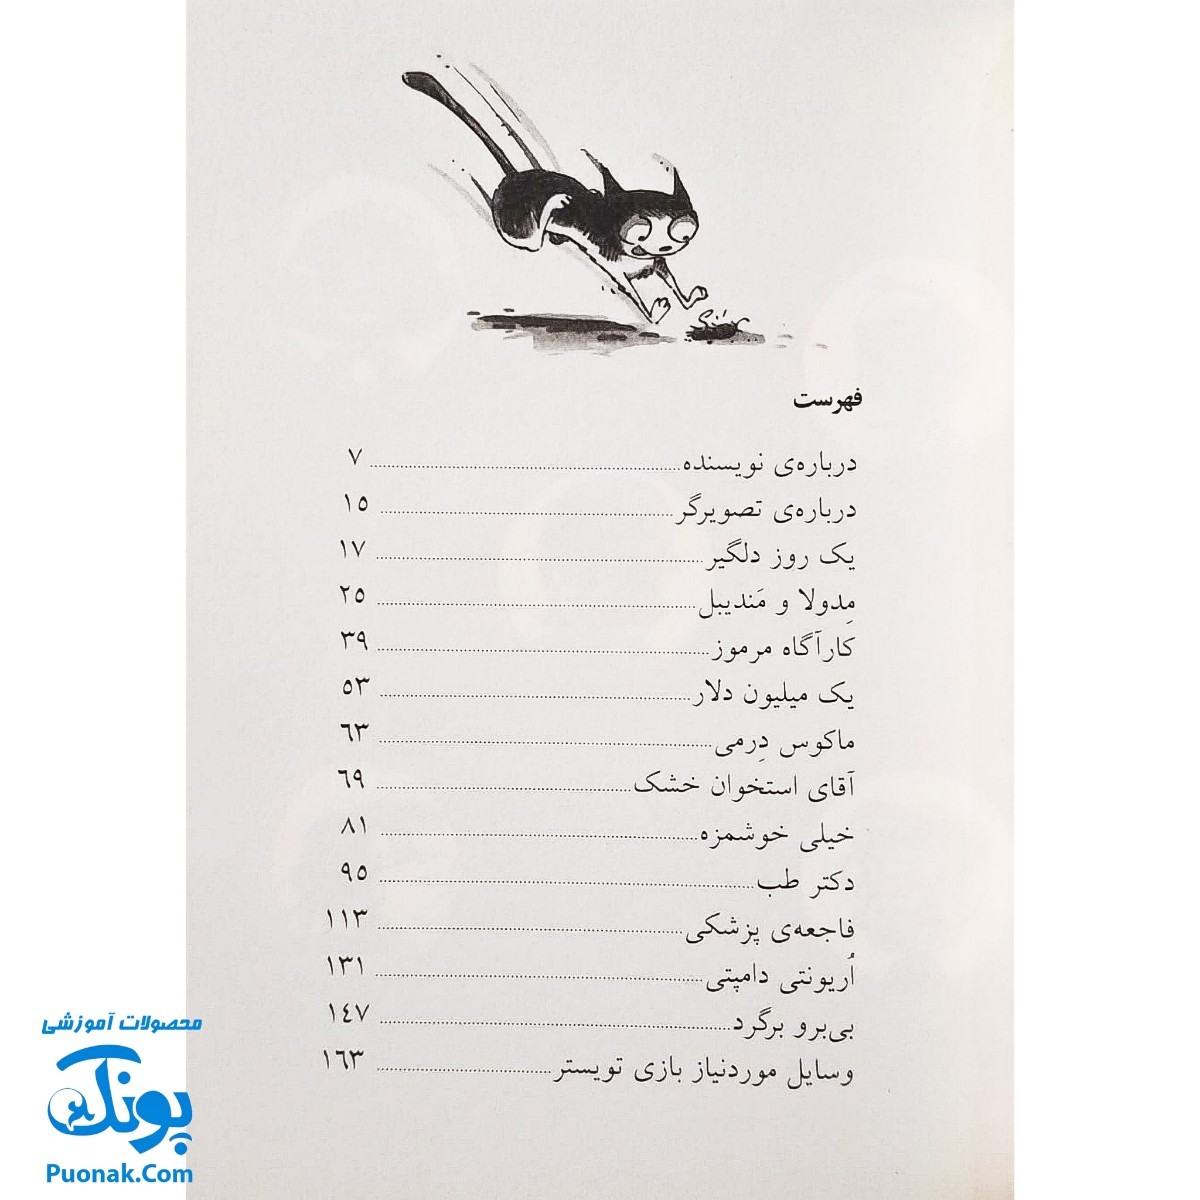 فهرست
درباره‌ی نویسنده ٧
درباره‌ی تصویرگر ١٥
یک روز دلگیر ١٧
مِدولا و مَندیبل ٢٥
کارآگاه مرموز ٣٩
یک میلیون دلار ٥٣
ماکوس دِرمی ٦٣
آقای استخوان خشک ٦٩
خیلی خوشمزه ٨١
دکتر طب ٩٥
فاجعه‌ی پزشکی ١١٣
اُریونتی دامپتی ١٣١
بی‌برو برگرد ١٤٧
وسایل موردنیاز بازی تویستر ١٦٣
محصولات آموزشی
پونک
Puonak.Com